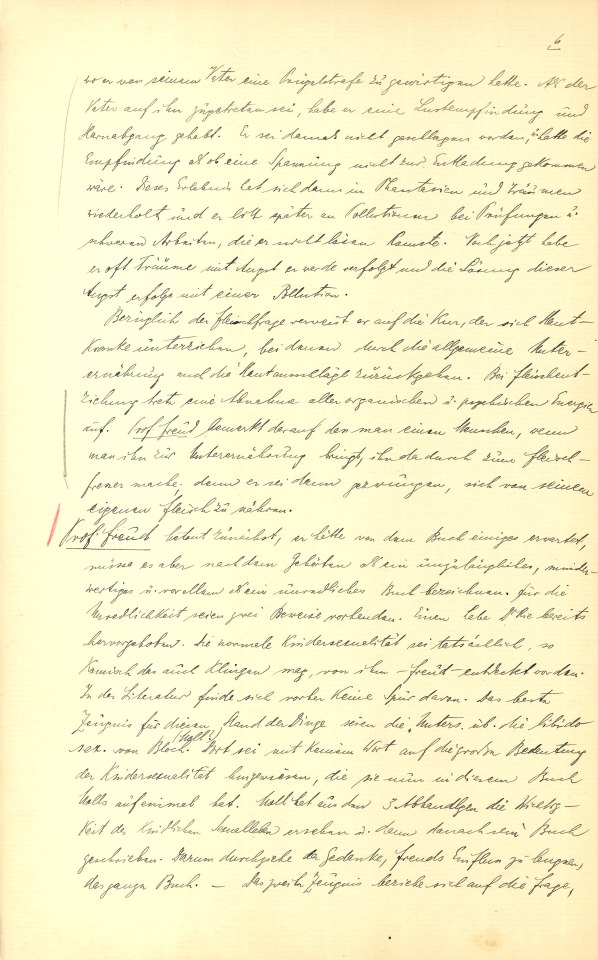 6
wo er von seinem Vater eine Prügelstrafe zu gewärtigen hatte. Als der
Vater auf ihn zugetreten sei, habe er eine Lustempfindung und
Harnabgang gehabt. Er sei damals nicht geschlagen worden, u. hatte die
Empfindung als ob eine Spannung nicht zur Entladung gekommen
wäre. Dieses Erlebnis hat sich dann in Phantasien und Träumen
wiederholt und er litt später an Pollutionen bei Prüfungen u.
schweren Arbeiten, die er nicht lösen konnte. Noch jetzt habe
er oft Träume mit Angst er werde verfolgt und die Lösung dieser
Angst erfolge mit einer Pollution.
Bezüglich der Fleischfrage verweist er auf die Kur, der sich Haut-
kranke unterziehen, bei denen durch die allgemeine Unter-
ernährung auch die Hautausschläge zurückgehen. Bei Fleischent-
ziehung trete eine Abnahme aller organischen u. psychischen Energien
auf. Prof. Freud bemerkt darauf den man einen Menschen, wenn
man ihn zur Unterernährung bringt, ihn dadurch zum Fleisch-
fresser mache. denn er sei dann gezwungen, sich von seinem
eigenen Fleisch zu nähren.
Prof. Freud betont zunächst, er hätte von dem Buch einiges erwartet,
müsse es aber nach dem Gehörten als ein unzulängliches, minder-
wertiges u. vor allem als ein unredliches Buch bezeichnen. für die
Unredlichkeit seien zwei Beweise vorhanden. Einen habe Dr. bereits
hervorgehoben. Die normale Kindersexualität sei tatsächlich, so
komisch das auch klingen mag, von ihm – Freud – entdeckt worden.
In der Literatur finde sich vorher keine Spur davon. Das beste
Zeugnis für diesen Stand der Dinge seien die Unters. üb. die libido
sex. von Moll. Dort sei mit keinem Wort auf die große Bedeutung
der Kindersexualität hingewiesen, die sie nun in diesem Buch
Molls auf einmal hat. Moll hat aus den 3 Abhandlgen die Wichtig-
keit des kindlichen Sexuallebens ersehen u. dann danach sein Buch
geschrieben. Darum durchziehe der Gedanke, Freuds Einfluss zu leugnen,
das ganze Buch. – Das zweite Zeugnis beziehe sich auf die Frage,